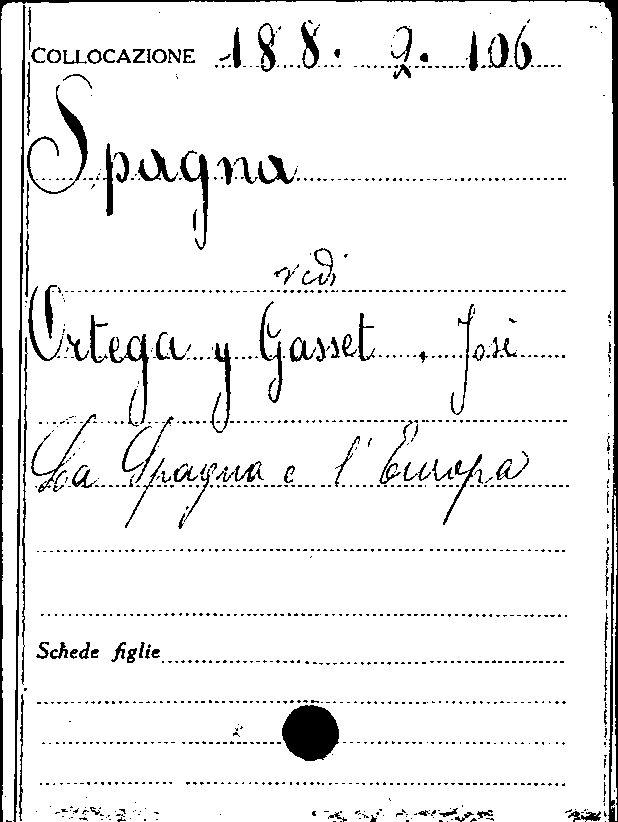 COLLOCAZIONE 188. 2. 106
Spagna
vedi
Ortega y Gasset. José
La Spagna e l'Europa
Schede figlie